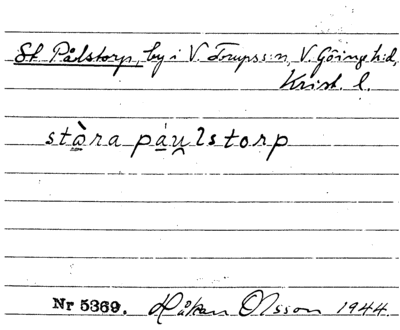 St. Pålstorp, by i V. Torups s:n, V. Göinge h:d,
Krist. l.
stàra páu̯lstorp
Nr 5369. Håkan Olsson 1944.